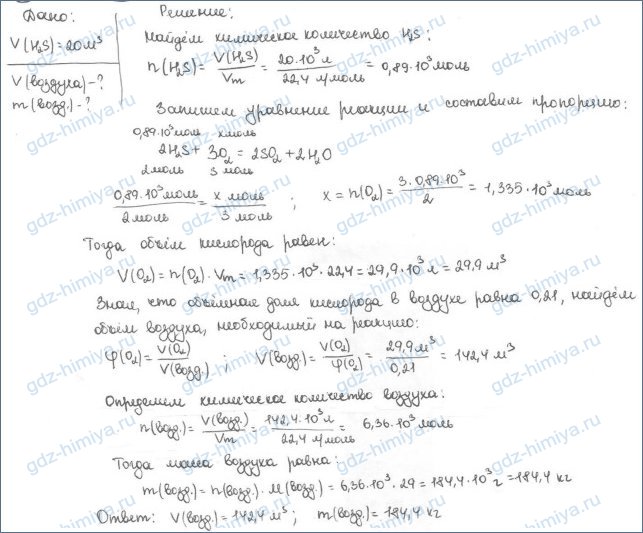 Дано:
V(H₂S)=20м³
V(воздуха)-?
m(возд.)-?
Решение:
Найдём химическое количество H₂S:
n(H₂S)= V(H₂S)/Vm = 20·10³л/22,4 л/моль = 0,89·10³моль
Запишем уравнение реакции и составим пропорцию:
0,89·10³моль xмоль
2H₂S + 3O₂ = 2SO₂ + 2H₂O
2моль 3 моль
0,89·10³моль/2моль = x моль/3 моль ; x = n(O₂) = 3·0,89·10³/2 = 1,335·10³моль
Тогда объём кислорода равен:
V(O₂) = n(O₂)·Vm = 1,335·10³·22,4 = 29,9·10³л = 29,9 м³
Зная, что объёмная доля кислорода в воздухе равна 0,21, найдём
объём воздуха, необходимый на реакцию:
φ(O₂)= V(O₂)/V(возд.) ; V(возд.)= V(O₂)/φ(O₂) = 29,9м³/0,21 = 142,4 м³
Определим химическое количество воздуха:
n(возд.)= V(возд.)/Vm = 142,4·10³л/22,4 л/моль = 6,36·10³моль
Тогда масса воздуха равна:
m(возд.)= n(возд.)·M(возд.) = 6,36·10³·29 = 184,4·10³г = 184,4 кг
Ответ: V(возд.)=142,4м³; m(возд.)=184,4 кг
gdz-himiya.ru